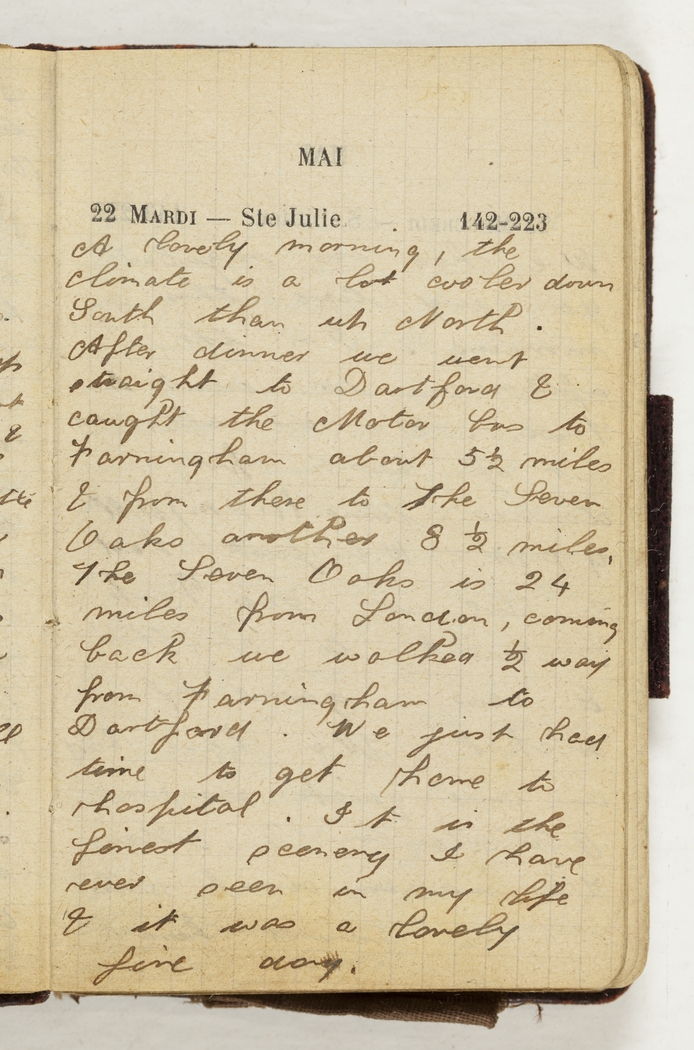 MAI
22 MARDI — Ste Julie 142-223
A lovely morning, the
climate is a lot cooler down
South than up North.
After dinner we went
straight to Dartford &
caught the Motor bus to
Farningham about 5½ miles
& from there to The Seven
Oaks another 8 ½ miles,
The Seven Oaks is 24
miles from London, coming
back we walked ½ way
from Farningham to
Dartford. We just had
time to get home to
hospital. It is the
finest scenery I have
ever seen in my life
& it was a lovely
fine day.